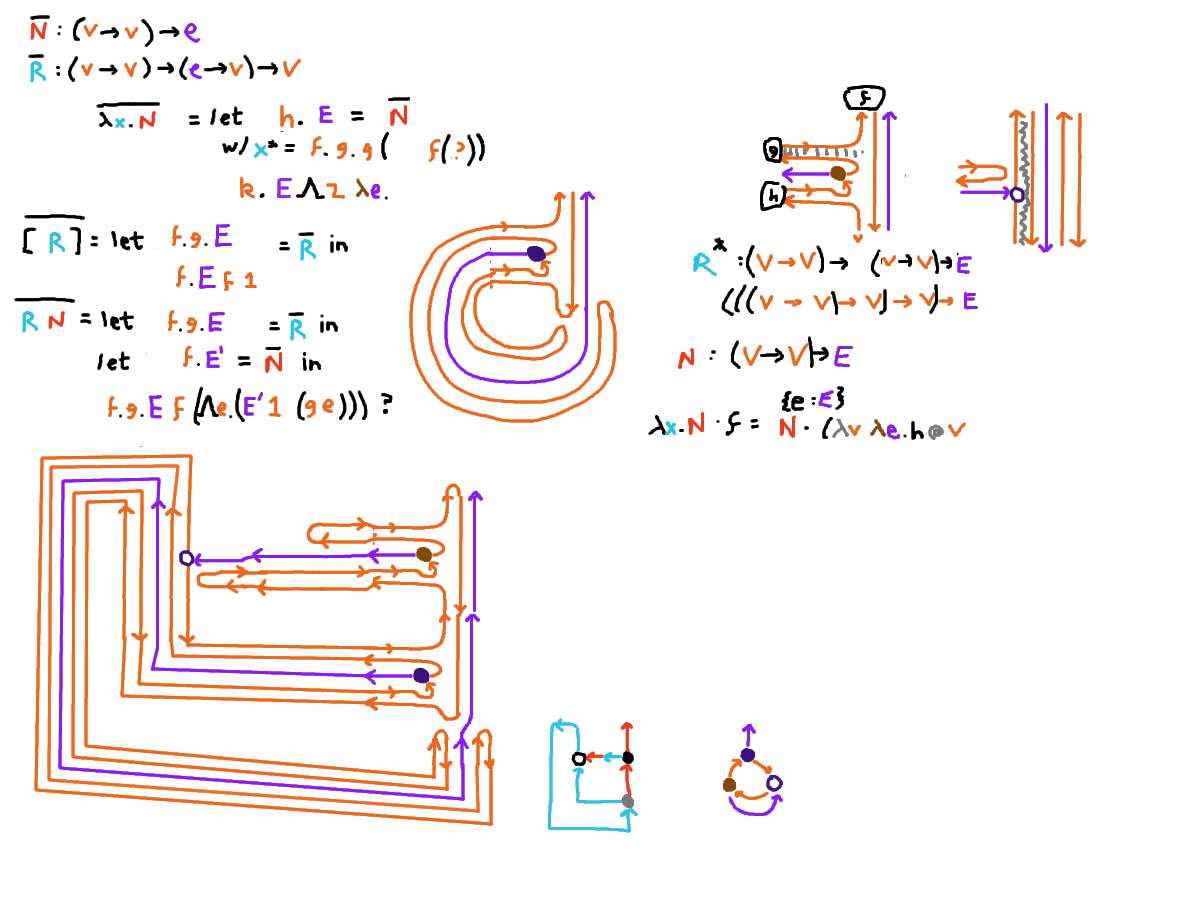 N̅ : (v→v)→e
R̅ : (v→v)→(e→v)→V
λx.N = let h. E = N̅
w/ x* = f. g. g( f(?))
k. E Λ z λe.
[ R ] = let f.g.E = R̅ in
f. E f 1
R N = let f.g.E = R̅ in
let f. E' = N̅ in
f.g. E f (Λe.(E' 1 (g e))) ?
f
g
h
R* : (V→V)→ (v→v)→E
(((v → v)→ v)→ v)→ E
N : (V→V)→E
{e : E}
λx.N · f = N · (λv λe. h @ v